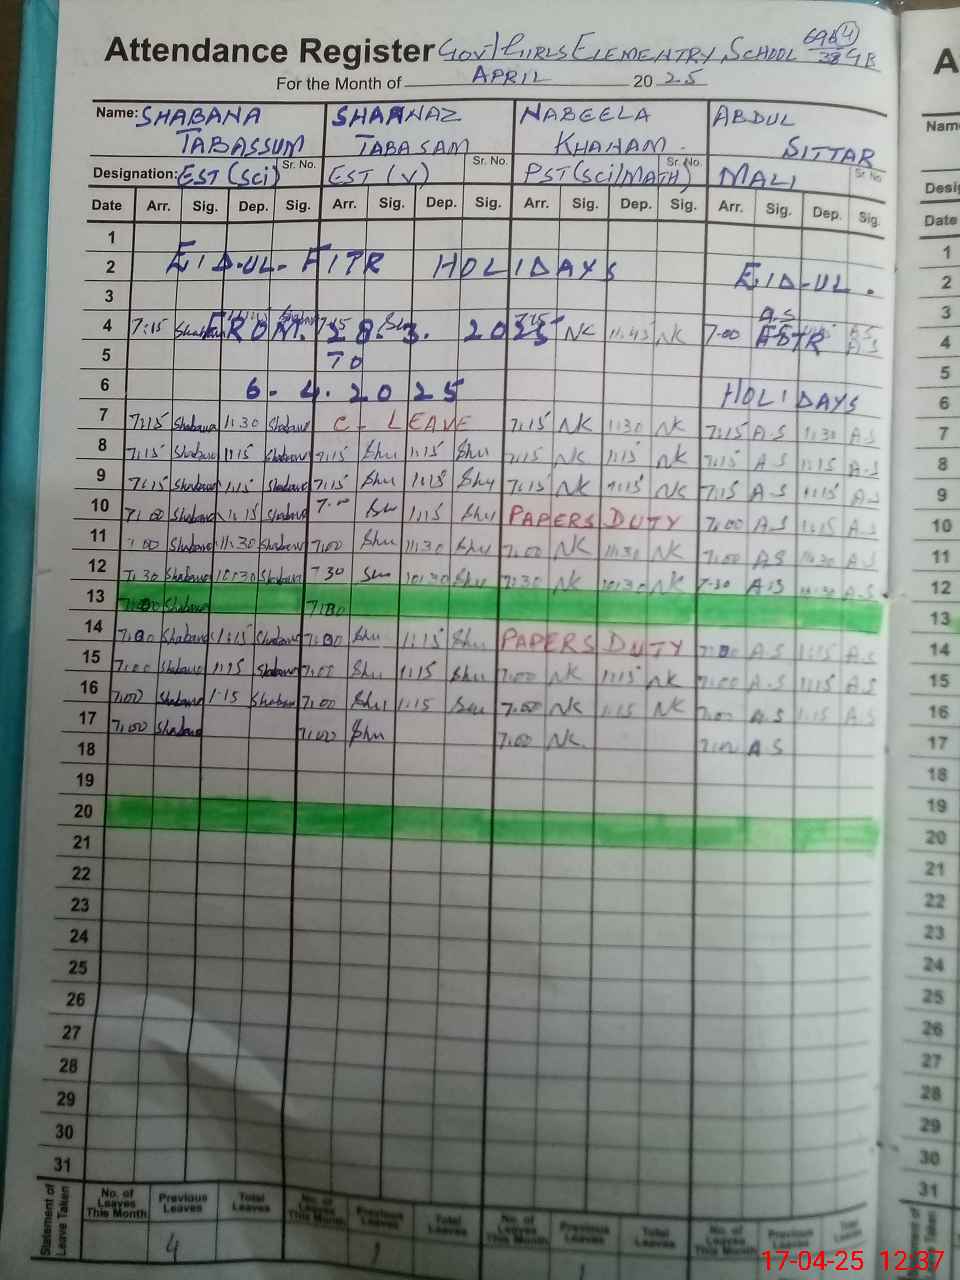 Attendance Register Gov/ GIRLS ELEMENTRY SCHOOL
For the Month of APRIL 2025
Name: SHABANA TABASSUM SHAHNAZ TABASAM NABEELA KHAHAM. ABDUL SITTAR
Designation: EST (Sci) Sr. No. EST (V) Sr. No. PST(Sci/MATH) Sr. No. MALI Sr No
Date Arr. Sig. Dep. Sig. Arr. Sig. Dep. Sig. Arr. Sig. Dep. Sig. Arr. Sig. Dep. Sig.
1
2 EID-UL-FITR HOLIDAYS EID-UL.
3
4 7:15 FROM. 28.3. 2025 NK 11:45 NK 7.00 FITR A.S
5 TO
6 6-4.2025 HOLIDAYS
7 7:15 Shabana 1:30 Shabana C- LEAVE 7:15 NK 1:30 NK 7:15 A.S 1:30 A.S
8 7:15 Shabana 1:15 Shabana 7:15 Shu 1:15 Shu 7:15 NK 1:15 NK 7:15 A.S 1:15 A.S
9 7:15 Shabana 1:15 Shabana 7:15 Shu 1:15 Shu 7:15 NK 1:15 NK 7:15 A.S 1:15 A.S
10 7:00 Shabana 1:15 Shabana 7.00 Shu 1:15 Shu PAPERS DUTY 7:00 A.S 1:15 A.S
11 7:00 Shabana 11:30 Shabana 7:00 Shu 11:30 Shu 7:00 NK 11:30 NK 7:00 AS 11:30 A.S
12 7:30 Shabana 10:30 Shabana 7:30 Shu 10:30 Shu 7:30 NK 10:30 NK 7:30 A.S 10:30 A.S
13 7:00 Shabana 7:00
14 7:00 Shabana 1:15 Shabana 7:00 Shu 1:15 Shu PAPERS DUTY 7:00 A.S 1:15 A.S
15 7:00 Shabana 1:15 Shabana 7:00 Shu 1:15 Shu 7:00 NK 1:15 NK 7:00 A.S 1:15 A.S
16 7:00 Shabana 1:15 Shabana 7:00 Shu 1:15 Shu 7:00 NK 1:15 NK 7:00 A.S 1:15 A.S
17 7:00 Shabana 7:00 Shu 7:00 NK. 7:00 A.S
18
19
20
21
22
23
24
25
26
27
28
29
30
31
Statement of Leave Taken No. of Leaves This Month Previous Leaves Total Leaves No. of Leaves This Month Previous Leaves Total Leaves No. of Leaves This Month Previous Leaves Total Leaves No. of Leaves This Month Previous Leaves Total Leaves
4 1 1
A
Name
Desig
Date
1
2
3
4
5
6
7
8
9
10
11
12
13
14
15
16
17
18
19
20
21
22
23
24
25
26
27
28
29
30
31
17-04-25 12:37